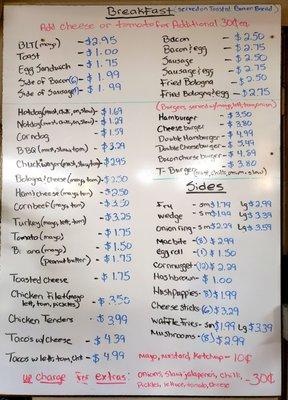 BreakFast (served on Toasted Corner Bread)
Add cheese or tomato for Additional 30¢ea
BLT (mayo) - $2.95
Toast - $1.00
Egg Sandwich - $1.75
Side of Bacon - $1.99
Side of Sausage - $1.99
Bacon - $2.50
Bacon & egg - $2.75
Sausage - $2.50
Sausage & egg - $2.75
Fried Bologna - $2.50
Fried Bologna & egg - $2.75
Hotdog (must, chili, on, slaw) - $1.69
Notdog (must, chili, on, slaw) - $1.29
Corndog - $1.59
BBQ (must, slaw, tom) - $3.29
Chuckwagon (must, slaw, tom) - $2.95
Bologna/cheese (mayo, tom) - $2.50
Ham/cheese (mayo, tom) - $2.50
Corn beef (mayo, tom) - $3.50
Turkey (mayo, lett, tom) - $3.25
Tomato (mayo) - $1.75
Banana (mayo) - $1.50
(peanut butter) - $1.75
Toasted Cheese - $1.75
Chicken Filet (mayo, lett, tom, pickles) - $3.50
Chicken Tenders - $3.99
Tacos w/ cheese - $4.39
Tacos w/ lett, tom, ch - $4.99
(Burgers served w/ mayo, lett, tom, onion)
Hamburger - $3.50
Cheeseburger - $3.80
Double Hamburger - $4.99
Double Cheeseburger - $5.49
Bacon cheeseburger - $4.89
T-Burger (must, chili, on, slaw) - $3.80
Sides
Fry - sm $1.99 Lg $2.99
wedge - sm $1.99 Lg $3.39
Onion ring - sm $2.29 Lg $3.59
Mac bite - (8) $2.99
Egg roll - (1) $1.50
Corn nugget - (12) $2.29
Hashbrown - $1.00
HushPuppies - (8) $1.99
Cheese sticks (6) $3.29
Waffle fries - sm $1.99 Lg $3.39
Mushrooms - (8) $2.99
Mayo, mustard, Ketchup - 10¢
up charge for extras: onions, slaw, jalapeno's, chili, pickles, lettuce, tomato, cheese - 30¢